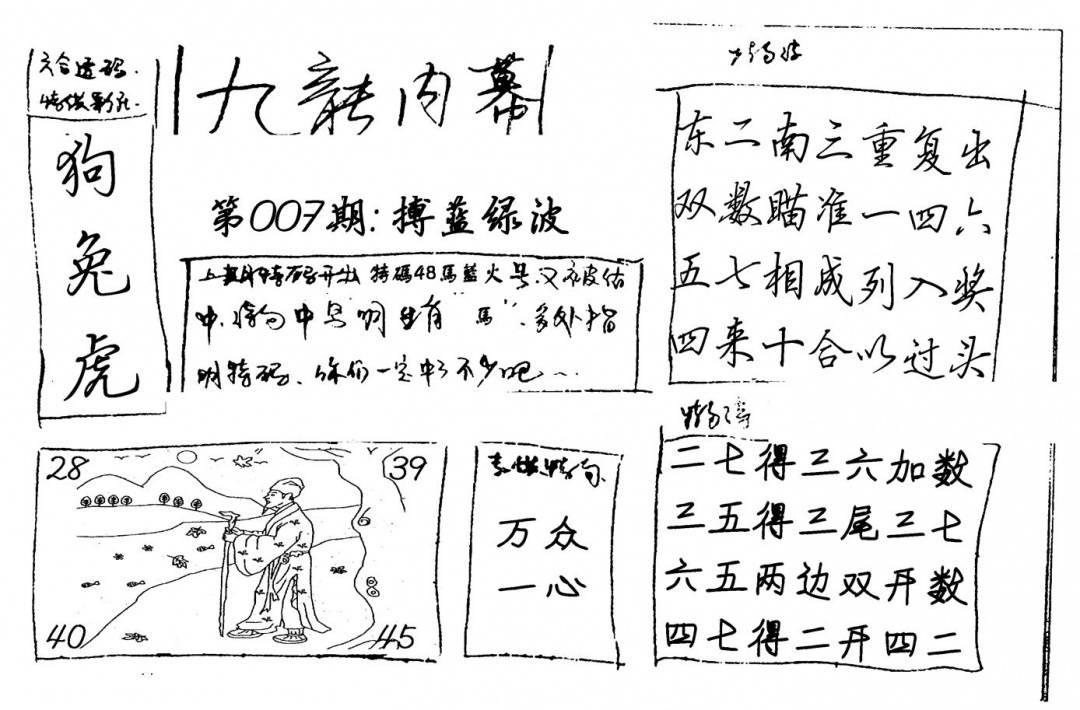 六合透码
狗
兔
虎
九龍内幕
第007期:搏蓝绿波
上期特码开出 特碼48馬藍火号,又被估
中,特句中号明生肖“馬”,多处指
明特码、你们一定中了不少吧~
东二南三重复出
双数瞄准一四六
五七相成列入奖
四来十合以过头
28
39
40
45
万众
一心
二七得三六加数
三五得三尾三七
六五两边双开数
四七得二开四二